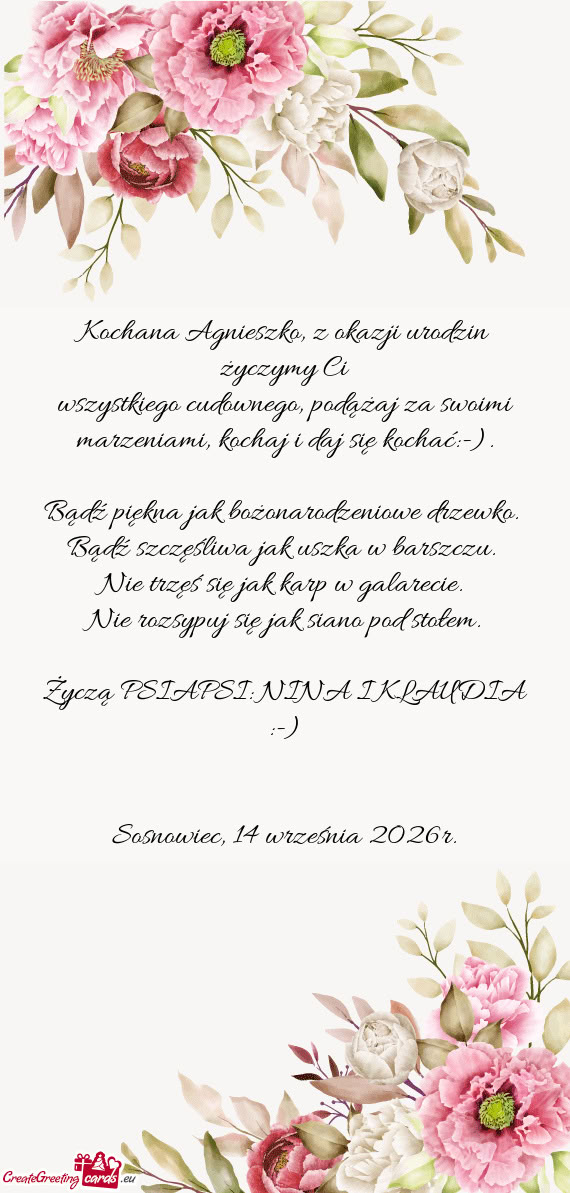 Kochana Agnieszko, z okazji urodzin
życzymy Ci
wszystkiego cudownego, podążaj za swoimi
marzeniami, kochaj i daj się kochać:-) .
Bądź piękna jak bożonarodzeniowe drzewko.
Bądź szczęśliwa jak uszka w barszczu.
Nie trzęś się jak karp w galarecie.
Nie rozsypuj się jak siano pod stołem.
Życzą PSIAPSI: NINA I KLAUDIA
:-)
Sosnowiec, 14 września 2026r.
CreateGreeting cards .eu